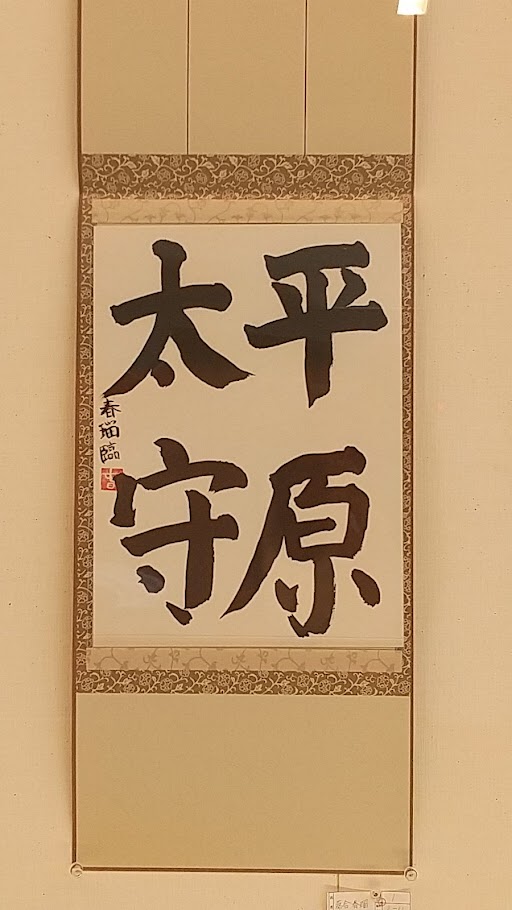 平原
太守
春瑠臨